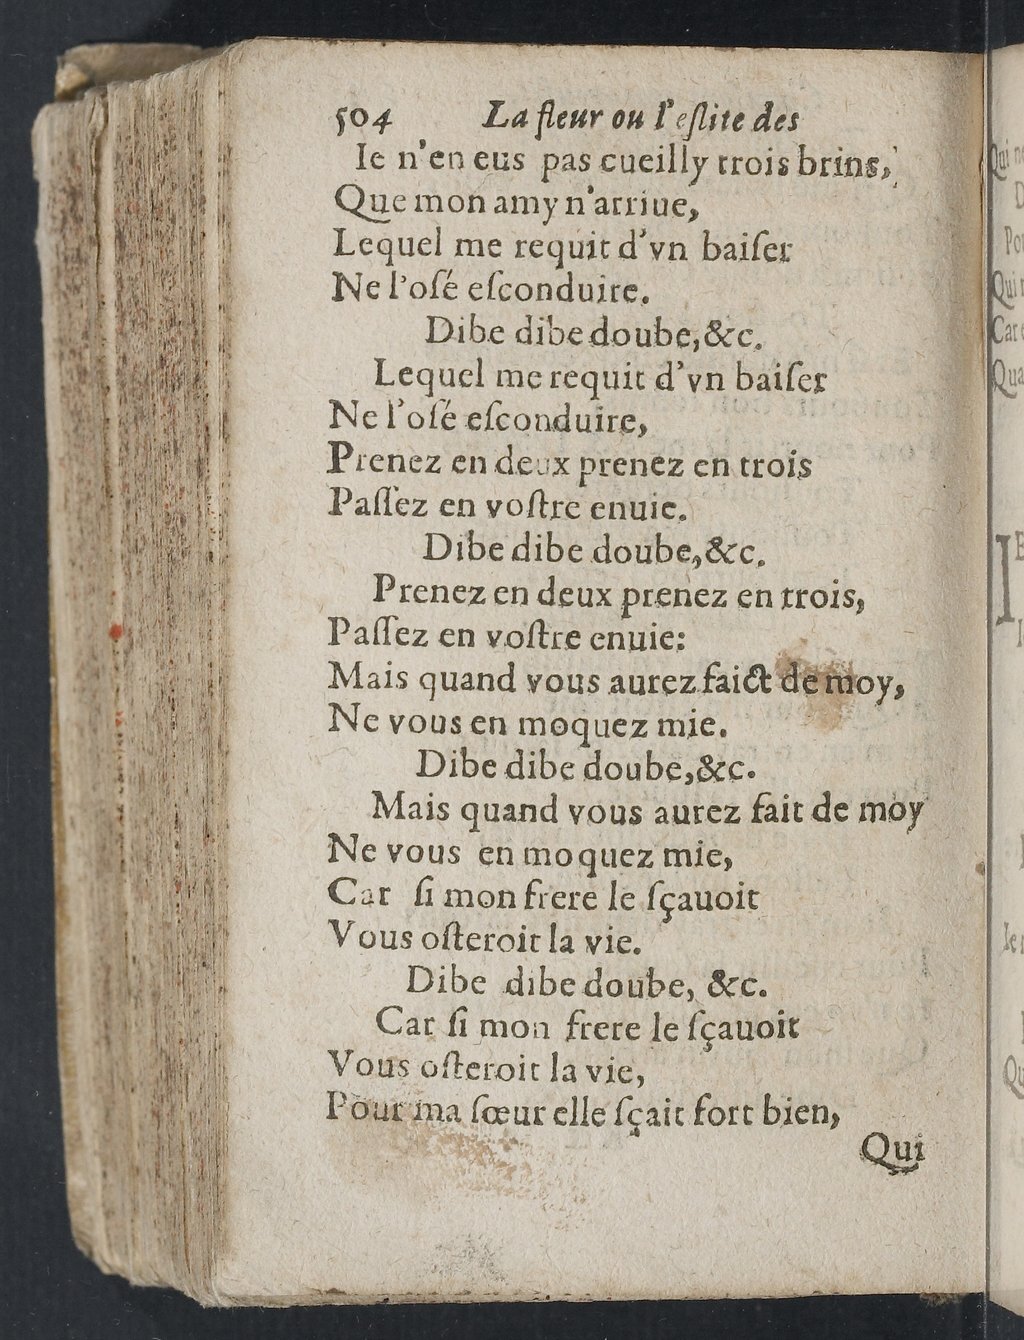 504 La fleur ou l'eſlite des
Ie n'en eus pas cueilly trois brins,
Que mon amy n'arriue,
Lequel me requit d'vn baiſer
Ne l'oſé eſconduire.
Dibe dibe doube, &c.
Lequel me requit d'vn baiſer
Ne l'oſé eſconduire,
Prenez en deux prenez en trois
Paſſez en voſtre enuie.
Dibe dibe doube, &c.
Prenez en deux prenez en trois,
Paſſez en voſtre enuie:
Mais quand vous aurez faict de moy,
Ne vous en moquez mie.
Dibe dibe doube, &c.
Mais quand vous aurez fait de moy
Ne vous en moquez mie,
Car ſi mon frere le ſçauoit
Vous oſteroit la vie.
Dibe dibe doube, &c.
Car ſi mon frere le ſçauoit
Vous oſteroit la vie,
Pour ma ſœur elle ſçait fort bien,
Qui